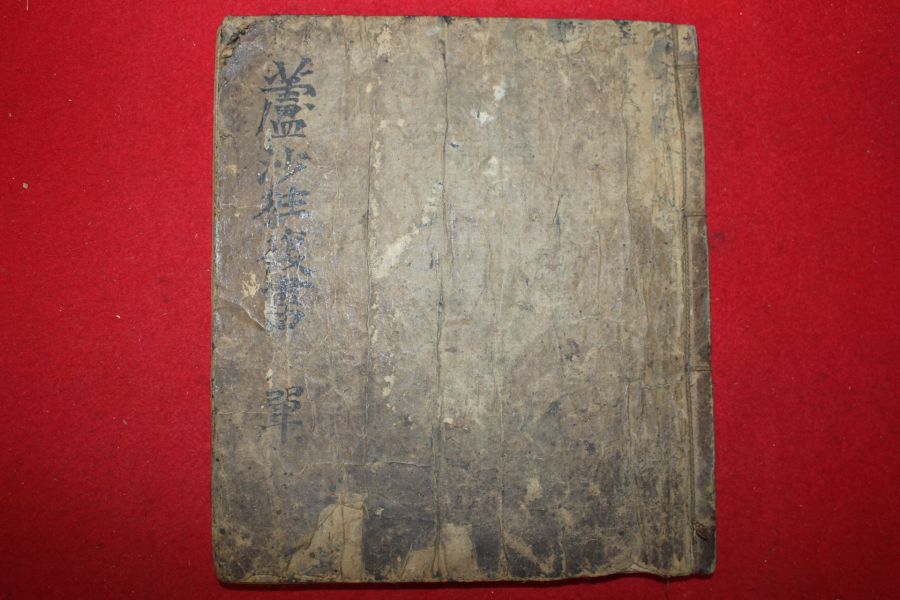 蘆沙往復書 單